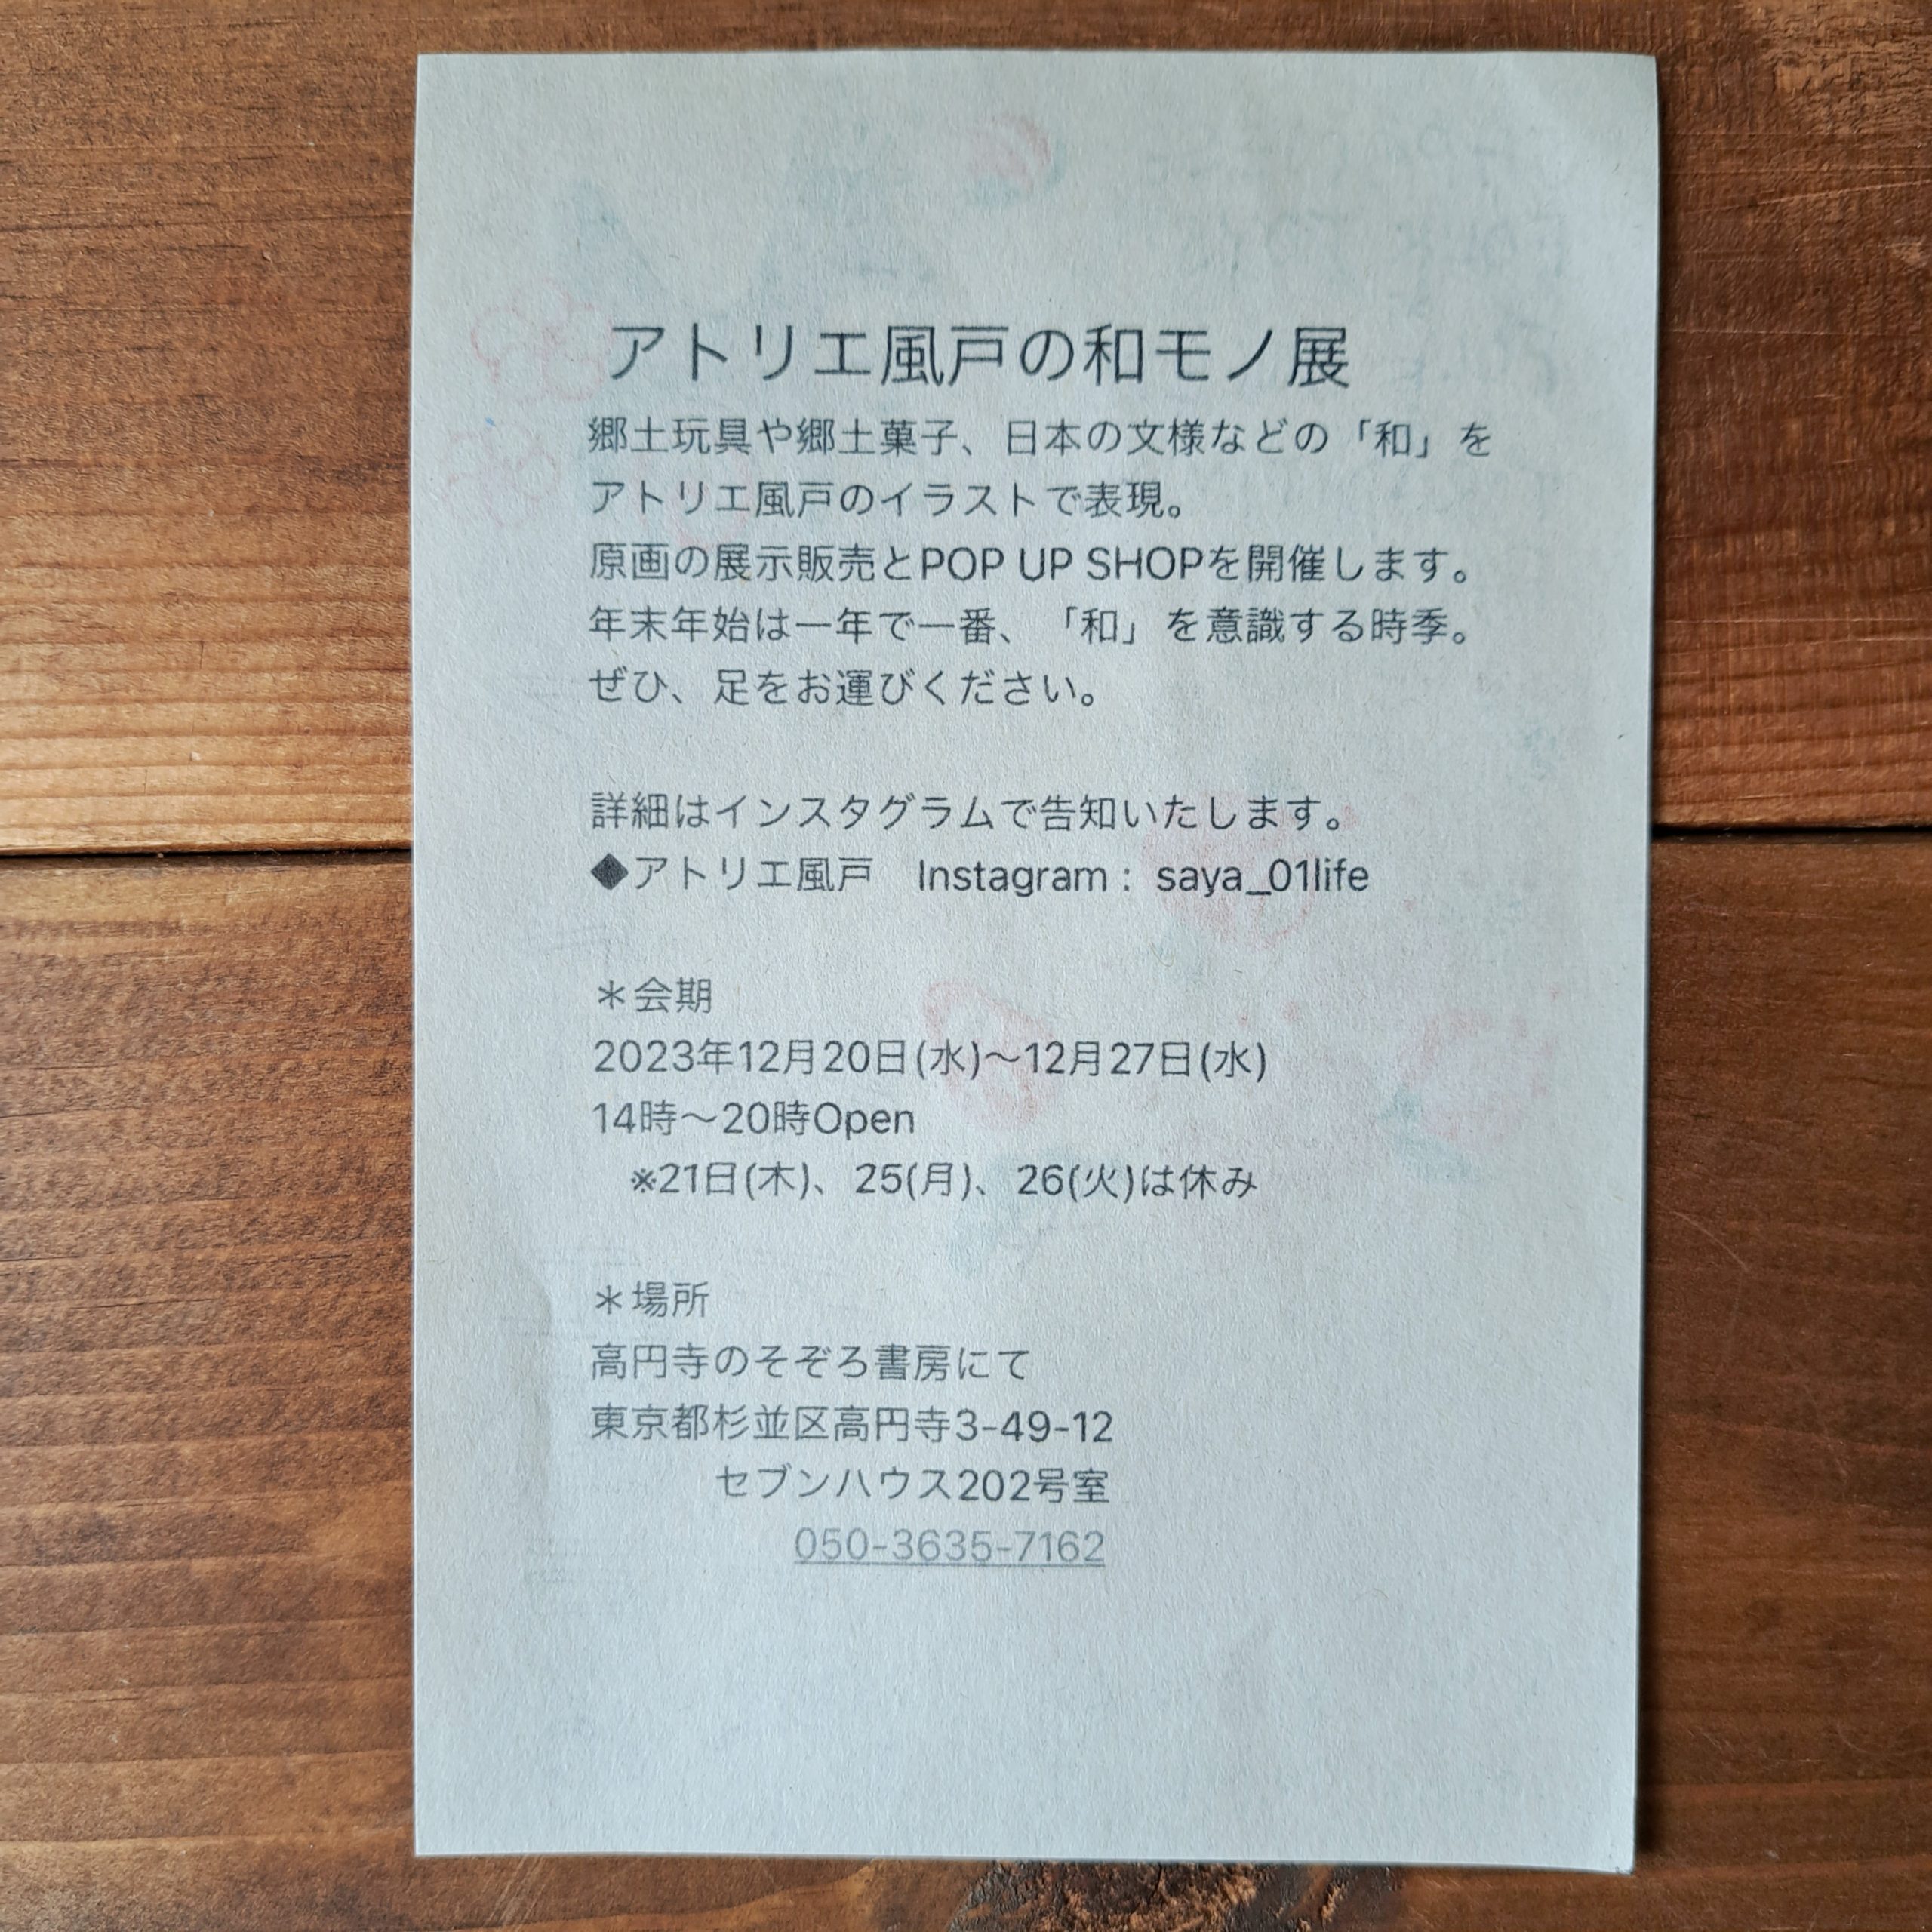 アトリエ風戸の和モノ展
郷土玩具や郷土菓子、日本の文様などの「和」を
アトリエ風戸のイラストで表現。
原画の展示販売とPOP UP SHOPを開催します。
年末年始は一年で一番、「和」を意識する時季。
ぜひ、足をお運びください。
詳細はインスタグラムで告知いたします。
◆アトリエ風戸　Instagram : saya_01life
＊会期
2023年12月20日(水)〜12月27日(水)
14時〜20時Open
※21日(木)、25(月)、26(火)は休み
＊場所
高円寺のそぞろ書房にて
東京都杉並区高円寺3-49-12
セブンハウス202号室
050-3635-7162